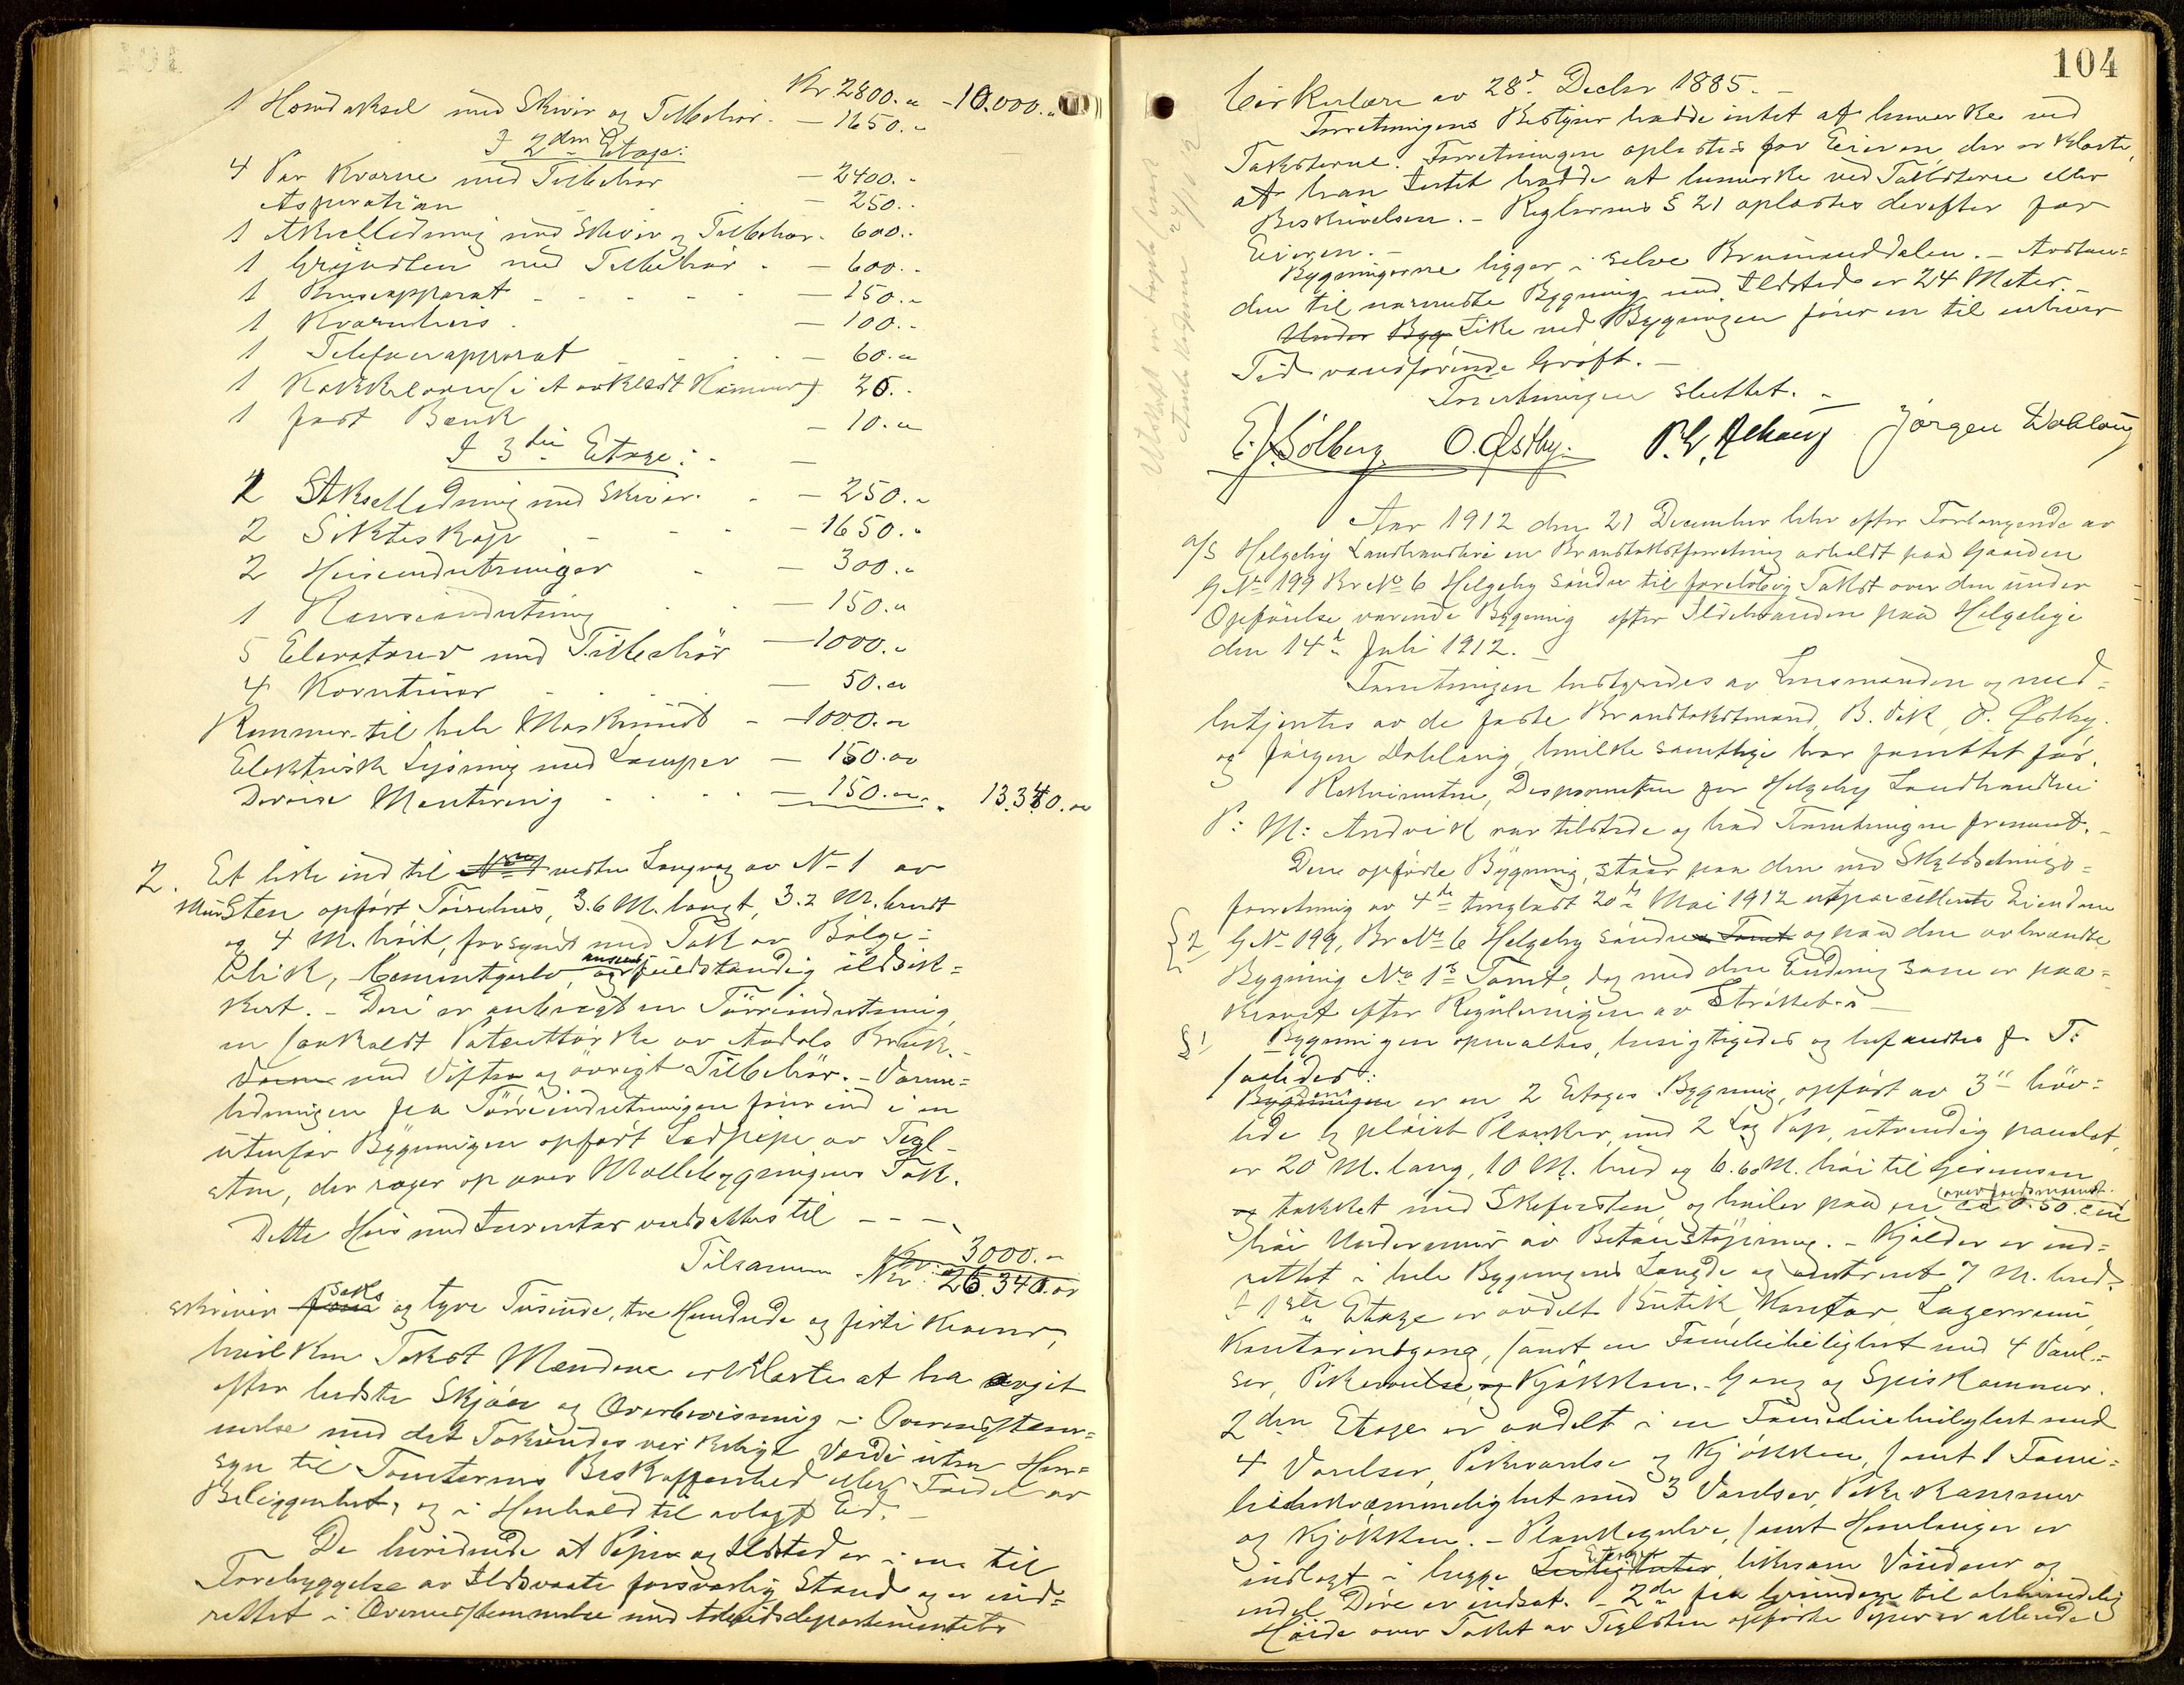 Kr. 2800.00 - 10.000.00
1 Hovedaksel med Skiver og Tilbehør. — 1650.00
I 2den Etage:
4 Par Kværne med Tilbehør — 2400.00
Aspiration — 250.00
1 Akselledning med Skiver og Tilbehør. 600.00
1 Grynsten med Tilbehør — 600.00
1 Renseapparat — 150.00
1 Kværnheis — 100.00
1 Telefonapparat — 60.00
1 Kakkelovn (i et avklædt Kammer) 25.00
1 fast Bænk — 10.00
I 3die Etage:
1 Akselledning med Skiver — 250.00
2 Sikteskap — 1650.00
2 Heiseindretninger — 300.00
1 Renseindretning — 150.00
5 Elevatorer med Tilbehør — 1000.00
4 Korntuer — 50.00
Remmer til hele Maskineriet — 1000.00
Elektrisk Lysning med Lamper — 150.00
Diverse Montering — 150.00 13.340.00
2. Et like ind til vestre Langvæg av No 1 av
Mursten opført Tørrehus, 3.6 M. langt, 3.2 M. bredt
og 4 M. høit, forsynet med Tak av Bølge-
blik, Cementgulv, ansees fuldstændig ildsik-
kert. - Deri er anbragt en Tørreindretning,
en saakaldt Patenttørke av Aadals Bruk.
med Vifter og øvrigt Tilbehør. - Varme-
ledningen fra Tørreindretningen fører ind i en
utenfor Bygningen opført Ladpipe av Tegl-
sten, der rager op over Møllebygningens Tak.
Dette Hus med Inventar værdsattes til - - -
Kr: 3000.00
Tilsammen Kr: 26.340.00
skriver seks og tyve Tusinde, tre Hundrede og firti Kroner,
hvilken Takst Mændene erklærte at ha avgit
efter bedste Skjøn og Overbevisning i Overensstem-
melse med det Takseredes virkelige Værdi uten Hen-
syn til Tomternes Beskaffenhed eller Fordel av
Beliggenhet, og i Henhold til avlagt Ed. -
De bevidnede at Piper og Ildsted er i en til
Forebyggelse av Ildsvaade forsvarlig Stand og er ind-
rettet i Overensstemmelse med Arbeidsdepartementets
104
Cirkulære av 28d Decbr 1885. -
Forretningens Bestyrer hadde intet at bemerke ved
Taksterne. Forretningen oplæstes for Eieren der erklærte,
at han Intet hadde at bemerke ved Taksterne eller
Beskrivelsen. - Reglernes § 21 oplæstes derefter for
Eieren. -
Bygningerne ligger i selve Brumunddalen. - Avstan-
den til nærmeste Bygning med Ildsted er 24 Meter. -
Under Byg Like ved Bygningen fører en til enhver
Tid vandførende Grøft. -
Forretningen sluttet. -
E. J. Solberg. O. Østby. Jørgen Dæhlang
Aar 1912 den 21 December blev efter Forlangende av
A/S Helgøby Landhandleri en Brandtakstforretning avholdt paa Gaarden
G No 199 Br No 6 Helgøby søndre til foreløbig Takst over den under
Opførelse værende Bygning efter Ildebranden paa Helgøby
den 14de Juli 1912. -
Forretningen bestyredes av Lensmanden og med-
betjentes av de faste Brandtakstmænd, B. Vik, O. Østby.
og Jørgen Dæhlang, hvilke samtlige har forrettet før.
Rekvirenten, Disponenten for Helgøby Landhandleri
P: M: Andvik var tilstede og bad Forretningen fremmet. -
Den opførte Bygning, staar paa den ved Skyldsetnings-
forretning av 4de tinglæst 20de Mai 1912 utparcellerte Eiendom
§ 2 G No 199, Br No 6 Helgøby søndre Tomt og paa den avbrændte
Bygning No 1s Tomt, dog med den Endring som er paa-
krævet efter Reguleringen av Strøket. -
§ 1 Bygningen opmaaltes, besigtigedes og befandtes f. T.
saaledes:
Den er en 2 Etages Bygning, opført av 3" høv-
lede og pløiet Planker, med 2 Lag Pap, utvendig panelet,
er 20 M. lang, 10 M. bred og 6.60 M. høi til Gesimsen
og tækket med Skifersten og hviler paa en ca 0.50 cm (over Jordsmonnet)
høi Undermur av Betonstøpning. - Kjelder er ind-
rettet i hele Bygningens Længde og omtrent 7 M. bred.
I 1ste Etage er avdelt Butik, Kontor, Lagerrum,
Kontorindgang, samt en Familieleilighet med 4 Værel-
ser, Pikeværelse, og Kjøkken. - Gang og Spiskammer.
2den Etage er avdelt i en Familieleilighet med
4 Værelser, Pikeværelse og Kjøkken, samt 1 Fami-
liebekvæmmelighet med 3 Værelser, Pikekammer
og Kjøkken. - Plankegulve, samt Himlinger er
indlagt i begge Leiligheter Etager, likesom Vinduer og
endel Døre er indsat. - 2de fra Grunden til almindelig
Høide over Taket av Teglsten opførte Piper er allerede